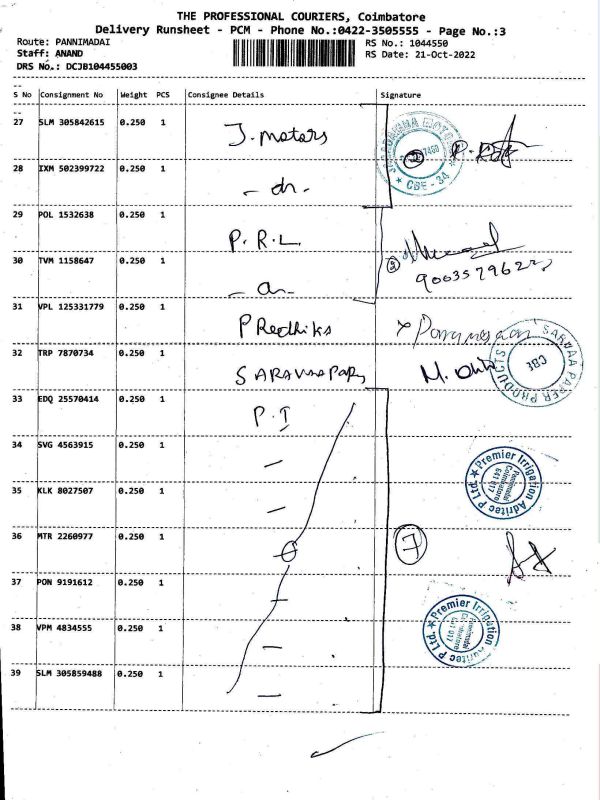 THE PROFESSIONAL COURIERS, Coimbatore
Delivery Runsheet - PCM - Phone No.:0422-3505555 - Page No.:3
Route: PANNIMADAI
RS No.: 1044550
Staff: ANAND
RS Date: 21-Oct-2022
DRS No.: DCJB104455003
S No Consignment No Weight PCS Consignee Details Signature
27 SLM 305842615 0.250 1 J. motors
28 IXM 502399722 0.250 1 - do -
CBE - 34
29 POL 1532638 0.250 1 P.R.L
30 TVM 1158647 0.250 1
2
31 VPL 125331779 0.250 1 PRedhiks
32 TRP 7870734 0.250 1
SARVAA PAPER PRODUCTS
CBE
33 EDQ 25570414 0.250 1 P.I
34 SVG 4563915 0.250 1 -
Premier Irrigation Adritec P Ltd.
Pannimadai
Coimbatore
641 017
35 KLK 8027507 0.250 1 -
36 MTR 2260977 0.250 1
7
37 PON 9191612 0.250 1 -
38 VPM 4834555 0.250 1 -
Premier Irrigation Adritec P Ltd.
Pannimadai
Coimbatore
641 017
39 SLM 305859488 0.250 1 -